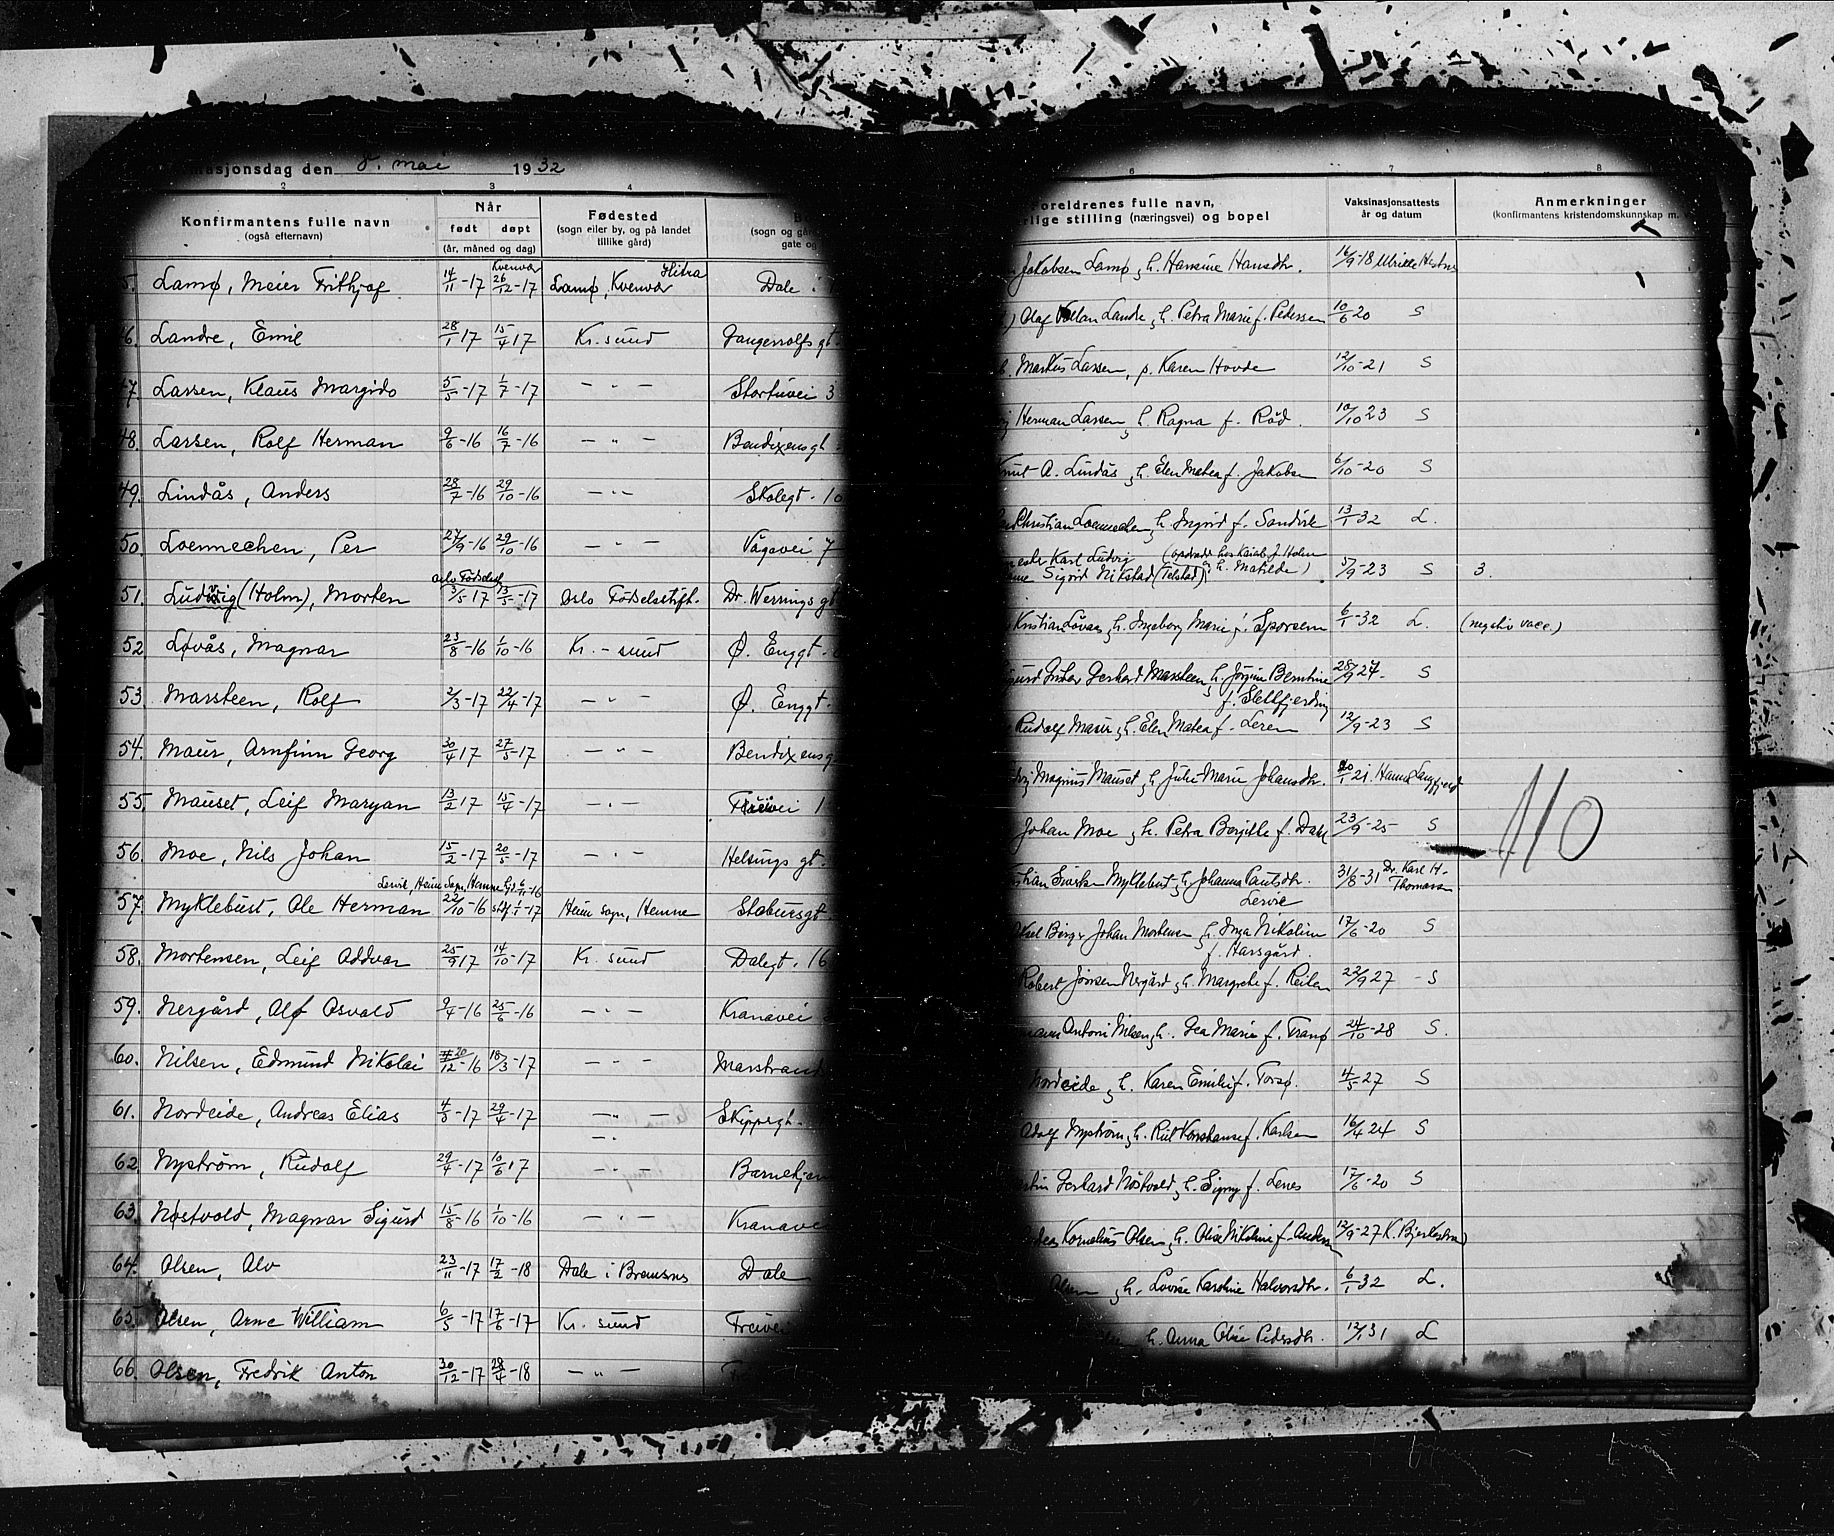 masjonsdag den 8. mai 1932
2 3 4
Konfirmantens fulle navn
(også efternavn)
Når
født døpt
(år, måned og dag)
Fødested
(sogn eller by, og på landet
tillike gård)
(sogn og gå
gate og
5. Lamø, Meier Frithjof 14/11-17 Kvenvær 26/12-17 Lamø, Kvenvær Hitra Dale i
46. Landre, Emil 28/1 17 15/4 17 Kr. sund Gangerrolfs gt.
47. Lassen, Klaus Margido 5/5-17 1/7-17 — " — Stortuvei 3
48. Larsen, Rolf Herman 9/6-16 16/7-16 — " — Bendixensgt.
49. Lindås, Anders 28/7-16 29/10-16 — " — Skolegt. 10
50. Loennechen, Per 27/9-16 29/10-16 — " — Vågevei 7
51. Ludvig (Holm), Morten Oslo Fødselsst 3/5-17 13/5-17 Oslo Fødselsstift. Dr. Wernings gt
52. Løvås, Magnar 23/8-16 1/10-16 Kr. - sund Ø. Enggt.
53. Marsteen, Rolf 2/3-17 22/4-17 — " — Ø. Enggt.
54. Maur, Arnfinn Georg 30/4 17 27/5-17 — " — Bendixensg
55. Mauset, Leif Maryan 13/2 17 15/4-17 — " — Freivei 1
56. Moe, Nils Johan 15/2-17 20/5-17 — " — Helsings gt.
57. Myklebust, Ole Herman 22/10-16 1/1-17 Heim sogn, Hemne Stabursgt
58. Mortensen, Leif Oddvar 25/9 17 14/10-17 Kr. sund Dalegt. 16
59. Nergård, Alf Osvald 9/4-16 25/6-16 — " — Kranavei
60. Nilsen, Edmund Nikolai 20/12-16 18/3-17 — " — Marstrand
61. Nordeide, Andreas Elias 4/3-17 29/4-17 — " — Skippergt.
62. Nystrøm, Rudolf 29/4-17 10/6 17 — " — Barnehjem
63. Nøstvold, Magnar Sigurd 15/8-16 1/10-16 — " — Kranave
64. Olsen, Alv 23/11-17 17/2-18 Dale i Bremsnes Dale
65. Olsen, Arne William 6/5-17 17/6-17 Kr. sund Freivei
66. Olsen, Fredrik Anton 30/12-17 28/4-18 — " — F
6 7 8
Foreldrenes fulle navn,
rlige stilling (næringsvei) og bopel
Vaksinasjonsattests
år og datum
Anmerkninger
(konfirmantens kristendomskunnskap m. v
Jakobsen Lamø, h. Hansine Hansdtr. 16/9-18 Ulrikke Hestnes
Olaf Vollan Landre, h. Petra Marie f. Pedersen 10/6 20 S
Markus Lassen, p. Karen Hovde 12/10-21 S
Herman Larsen, h. Ragna f. Rød. 10/10 23 S
Knut A. Lindås, h. Elen Matea f. Jakobsen 6/10-20 S
Christian Loennechen, h. Ingrid f. Sandvik 13/1 32 L.
ester Karl Ludvig (opdradd hos Kaiarb. J. Holm
Sigrid Nikstad (Telstad) og h. Matilde) 3/9-23 S 3.
Kristian Løvås, h. Ingeborg Marie f. Sporsem 6/1-32 L. (negativ vacc.)
Gerhard Marsteen, h. Jørgine Berntine 28/9 27. S
f. Slettfjerding
Rudolf Maur, h. Elen Matea f. Leren 12/9-23 S
Magnus Mauset, h. Julie Marie Johansdtr. 20/1 21. Hanna Langfjord
Johan Moe, h. Petra Bergitte f. Dahl 23/9-25 S
110
Myklebust, h. Johanna Paulsdtr. 31/8-31 Dr. Karl H. Thomassen
Lervik
Birger Johan Mortensen, h. Inga Nikoline 17/6-20 S
f. Harsgård.
Robert Jørisen Nergård, h. Margrete f. Reiten 22/9 27 - S
Antoni Nilsen, h. Gea Marie f. Tranø 24/10-28 S.
Nordeide, h. Karen Emilie f. Torsø. 4/5-27 S
Adolf Nystrøm, h. Rut Konstanse f. Karlsen 16/4 24 S
Gerhard Nøstvold, h. Signy f. Lenes 17/6-20 S
Kornelius Olsen, h. Olise Nikoline f. Anders 12/9-27 K. Bjerkestrand
Olsen, h. Lovise Karoline Halvorsdtr. 6/1 32 L.
h. Anna Olise Pedersdtr. 12/1 31 L